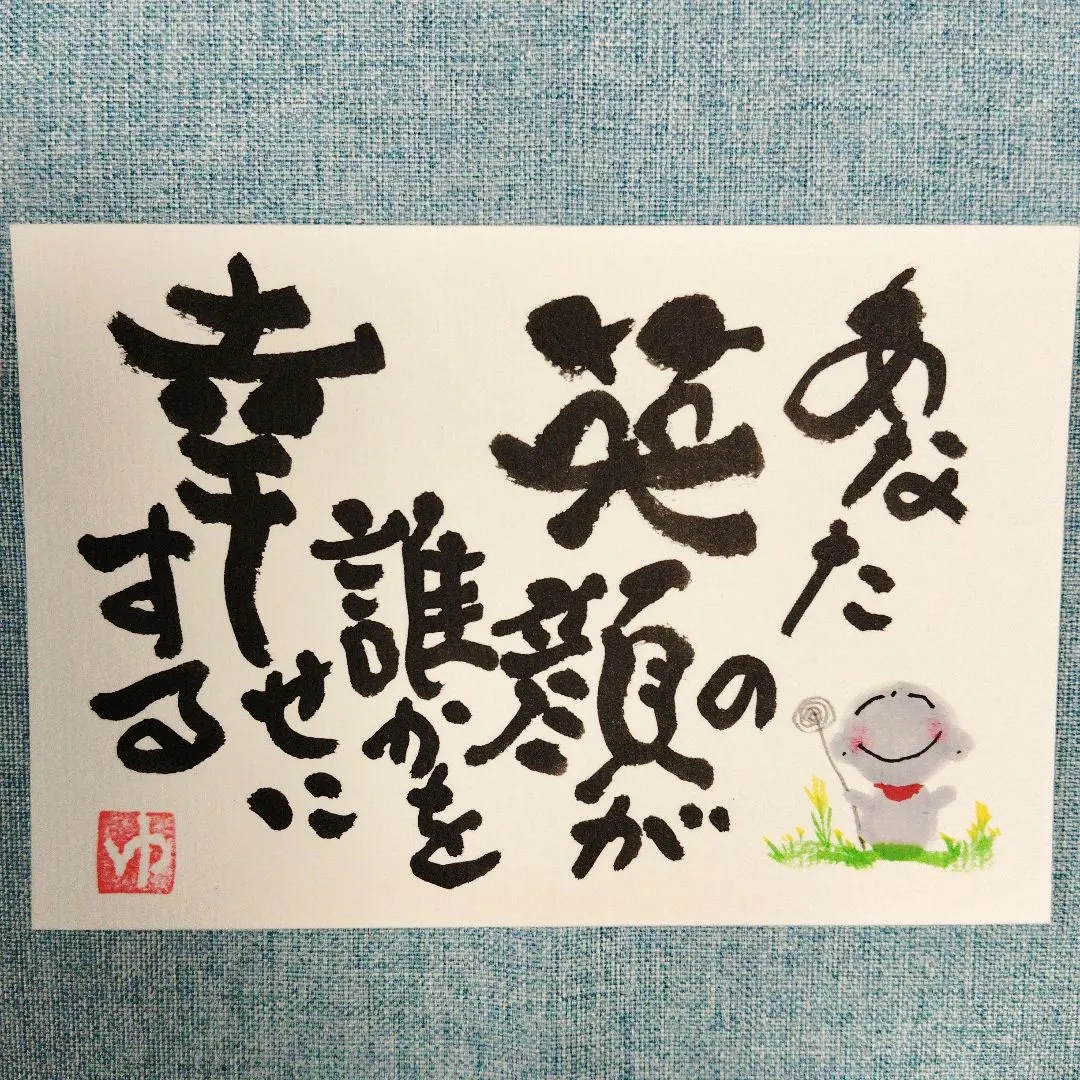 あなたの
笑顔が
誰かを
幸せに
する
ゆ